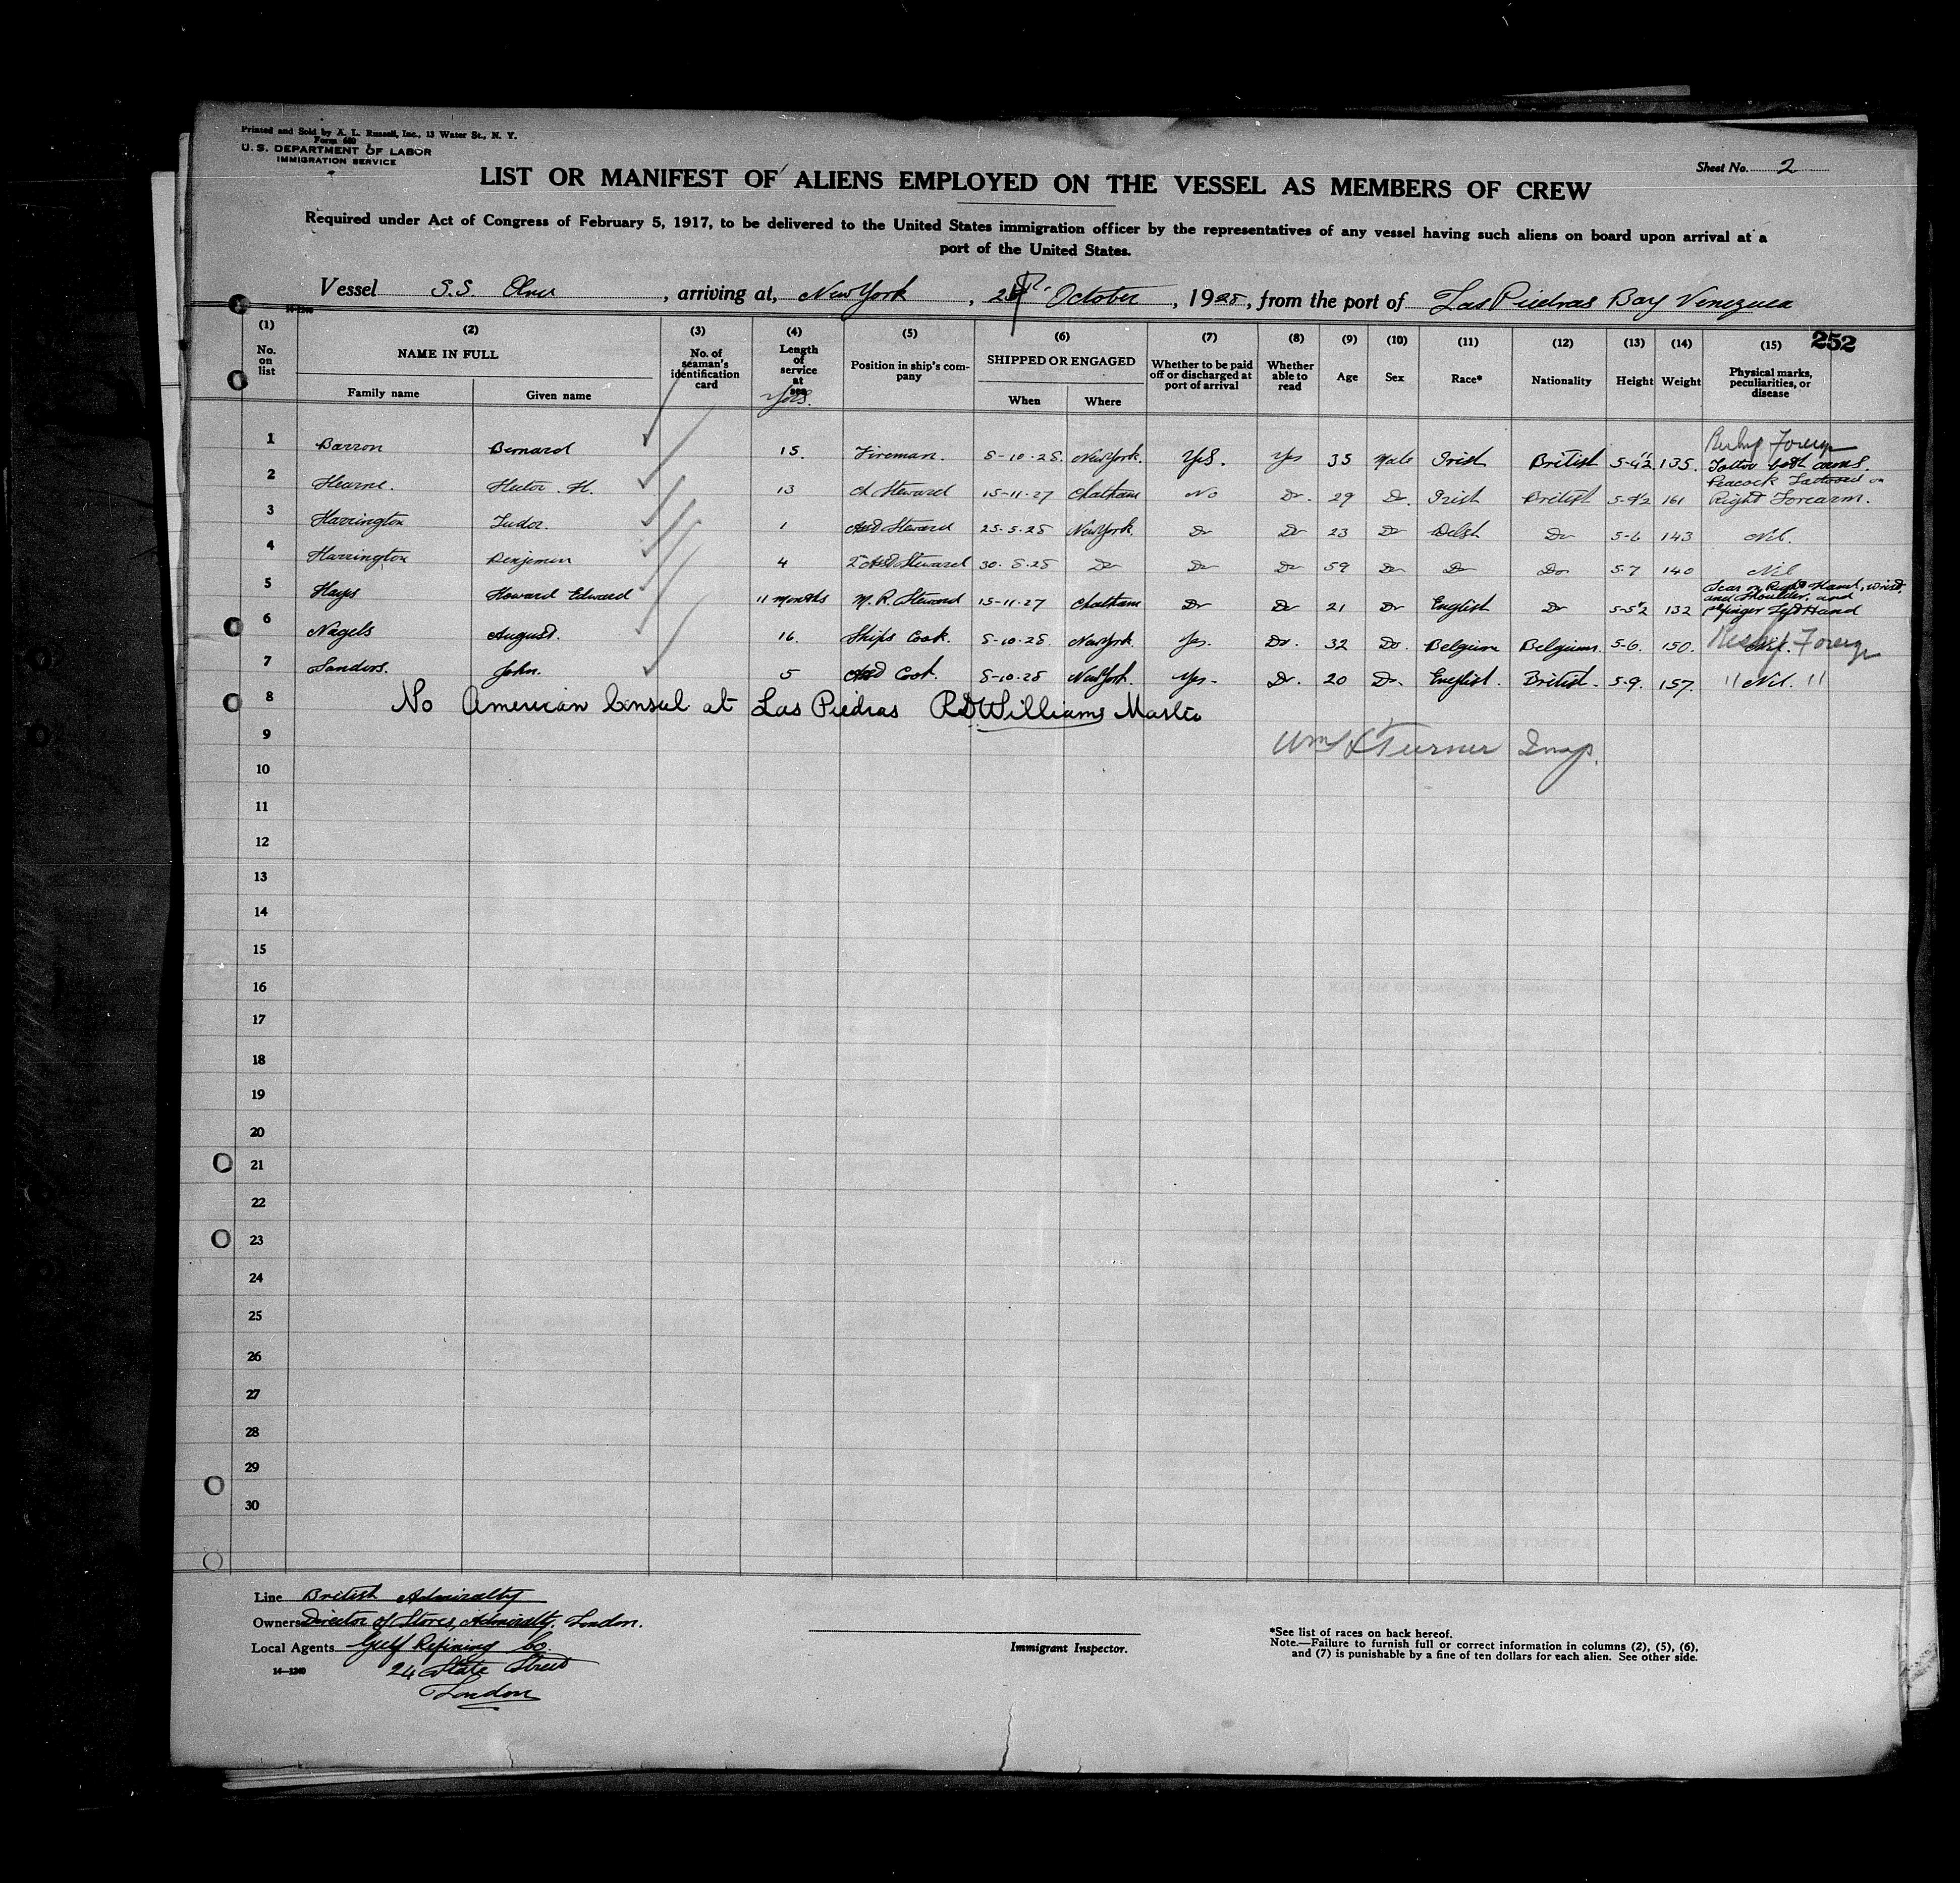 Printed and Sold by A. L. Russell, Inc., 13 Water St., N. Y.
Form 680
U. S. DEPARTMENT OF LABOR
IMMIGRATION SERVICE
Sheet No. 2
LIST OR MANIFEST OF ALIENS EMPLOYED ON THE VESSEL AS MEMBERS OF CREW
Required under Act of Congress of February 5, 1917, to be delivered to the United States immigration officer by the representatives of any vessel having such aliens on board upon arrival at a
port of the United States.
Vessel S.S. Olna, arriving at, New York, October, 1928, from the port of Las Piedras Bay Venezuela
14-1240
252
(1) No. on list
(2) NAME IN FULL Family name Given name
(3) No. of seaman's identification card
(4) Length of service at sea Yrs.
(5) Position in ship's company
(6) SHIPPED OR ENGAGED When Where
(7) Whether to be paid off or discharged at port of arrival
(8) Whether able to read
(9) Age
(10) Sex
(11) Race*
(12) Nationality
(13) Height
(14) Weight
(15) Physical marks, peculiarities, or disease
1 Barron Bernard 15. Fireman. 8-10-28. New York. Yes. Yes 35 Male Irish British 5-4½ 135. Foreign Tattoo both arms.
2 Hearne. Hector. H. 13 Ch. Steward 15-11-27 Chatham No Do. 29 Do. Irish British 5-9½ 161 Peacock Tattooed on Right Forearm.
3 Harrington Tudor. 1 Asst Steward 25-5-28 New York. Do Do 23 Do Welsh Do 5-6 143 Nil.
4 Harrington Benjamin 4 2nd Asst Steward 30-8-28 Do Do Do 59 Do Do Do 5-7 140 Nil
5 Hays Howard Edward 11 months M. R. Steward 15-11-27 Chatham Do Do 21 Do English Do 5-5½ 132 Scar on Right Hand, wrist, and Shoulder, and finger Left Hand
6 Nagels August. 16. Ships Cook. 8-10-28. New York Yes. Do. 32 Do. Belgium Belgium. 5-6. 150. Nil. Foreign
7 Sanders. John. 5 Asst Cook. 8-10-28 New York. Yes. Do. 20 Do. English. British. 5-9. 157. " Nil. "
8 No American Consul at Las Piedras R D Williams Master
9 Wm Turner Insp.
10
11
12
13
14
15
16
17
18
19
20
21
22
23
24
25
26
27
28
29
30
Line British Admiralty
Owners Director of Stores, Admiralty, London.
Local Agents Gulf Refining Co.
24 State Street
London
14-1240
Immigrant Inspector.
*See list of races on back hereof.
Note.—Failure to furnish full or correct information in columns (2), (5), (6),
and (7) is punishable by a fine of ten dollars for each alien. See other side.